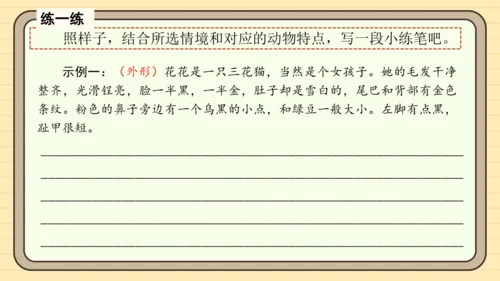 练一练
照样子，结合所选情境和对应的动物特点，写一段小练笔吧。
示例一：（外形）花花是一只三花猫，当然是个女孩子。她的毛发干净
整齐，光滑锃亮，脸一半黑，一半金，肚子却是雪白的，尾巴和背部有金色
条纹。粉色的鼻子旁边有一个乌黑的小点，和绿豆一般大小。左脚有点黑，
趾甲很短。